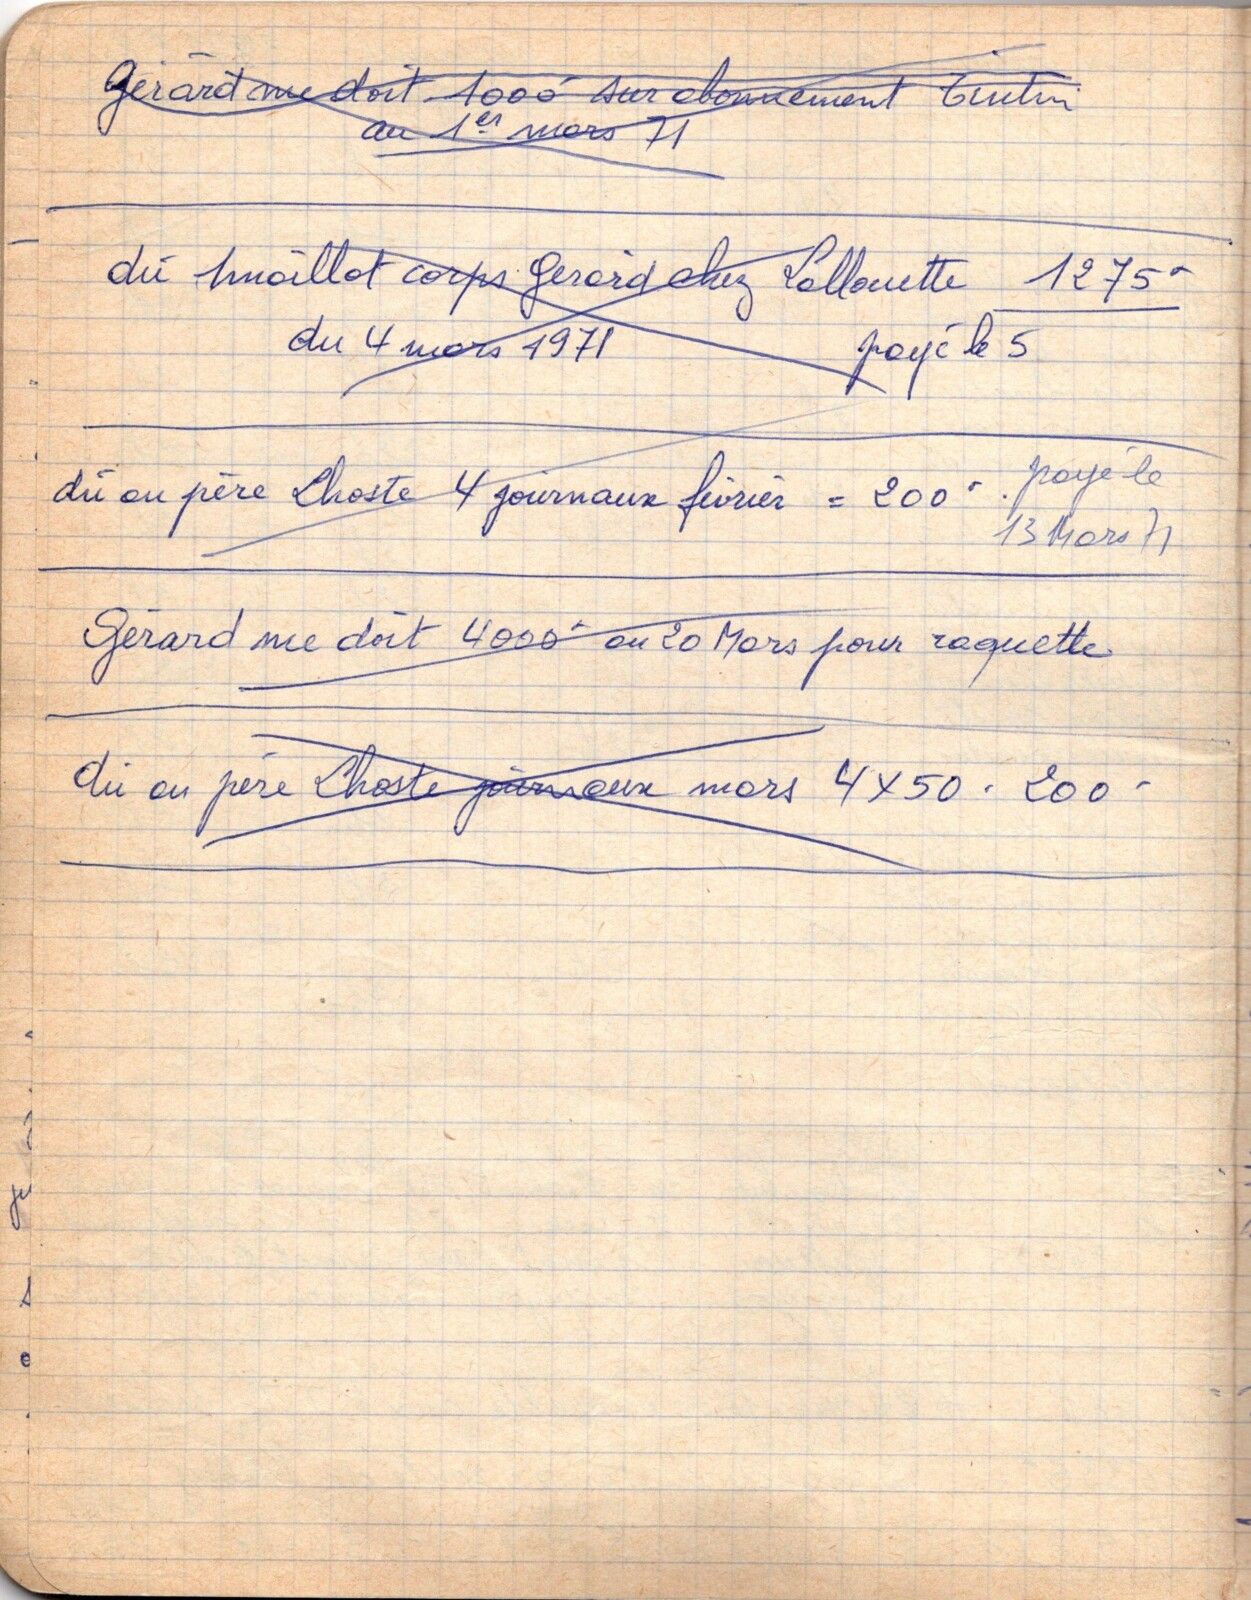 Gérard me doit 1000 sur abonnement Tintin
au 1er mars 71
dû 1 maillot corps Gérard chez Lallouette 1275-
du 4 mars 1971 payé le 5
dû au père Lhoste 4 journaux février = 200-. payé le
13 Mars 71
Gérard me doit 4000- au 20 Mars pour raquette
dû au père Lhoste journaux mars 4x50. 200-